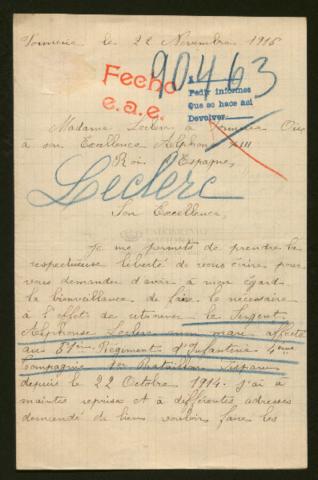 le 22 Novembre 1915
Fecho
e.a.e.
90463
Pedir informes
Que se hace así
Devolver
Madame Leclerc à
à son Excellence Alphonse XIII
Roi Espagne,
Leclerc
Son Excellence,
Je me permets de prendre la
respectueuse liberté de vous écrire pour
vous demander d'avoir à mon égard
la bienveillance de faire le nécessaire
à l'effet de retrouver le Sergent
Alphonse Leclerc mon mari affecté
au 51ème Régiment d'Infanterie 4ème
Compagnie 1er Bataillon disparu
depuis le 22 Octobre 1914. J'ai à
maintes reprise et à différentes adresses
demandé de bien vouloir faire les